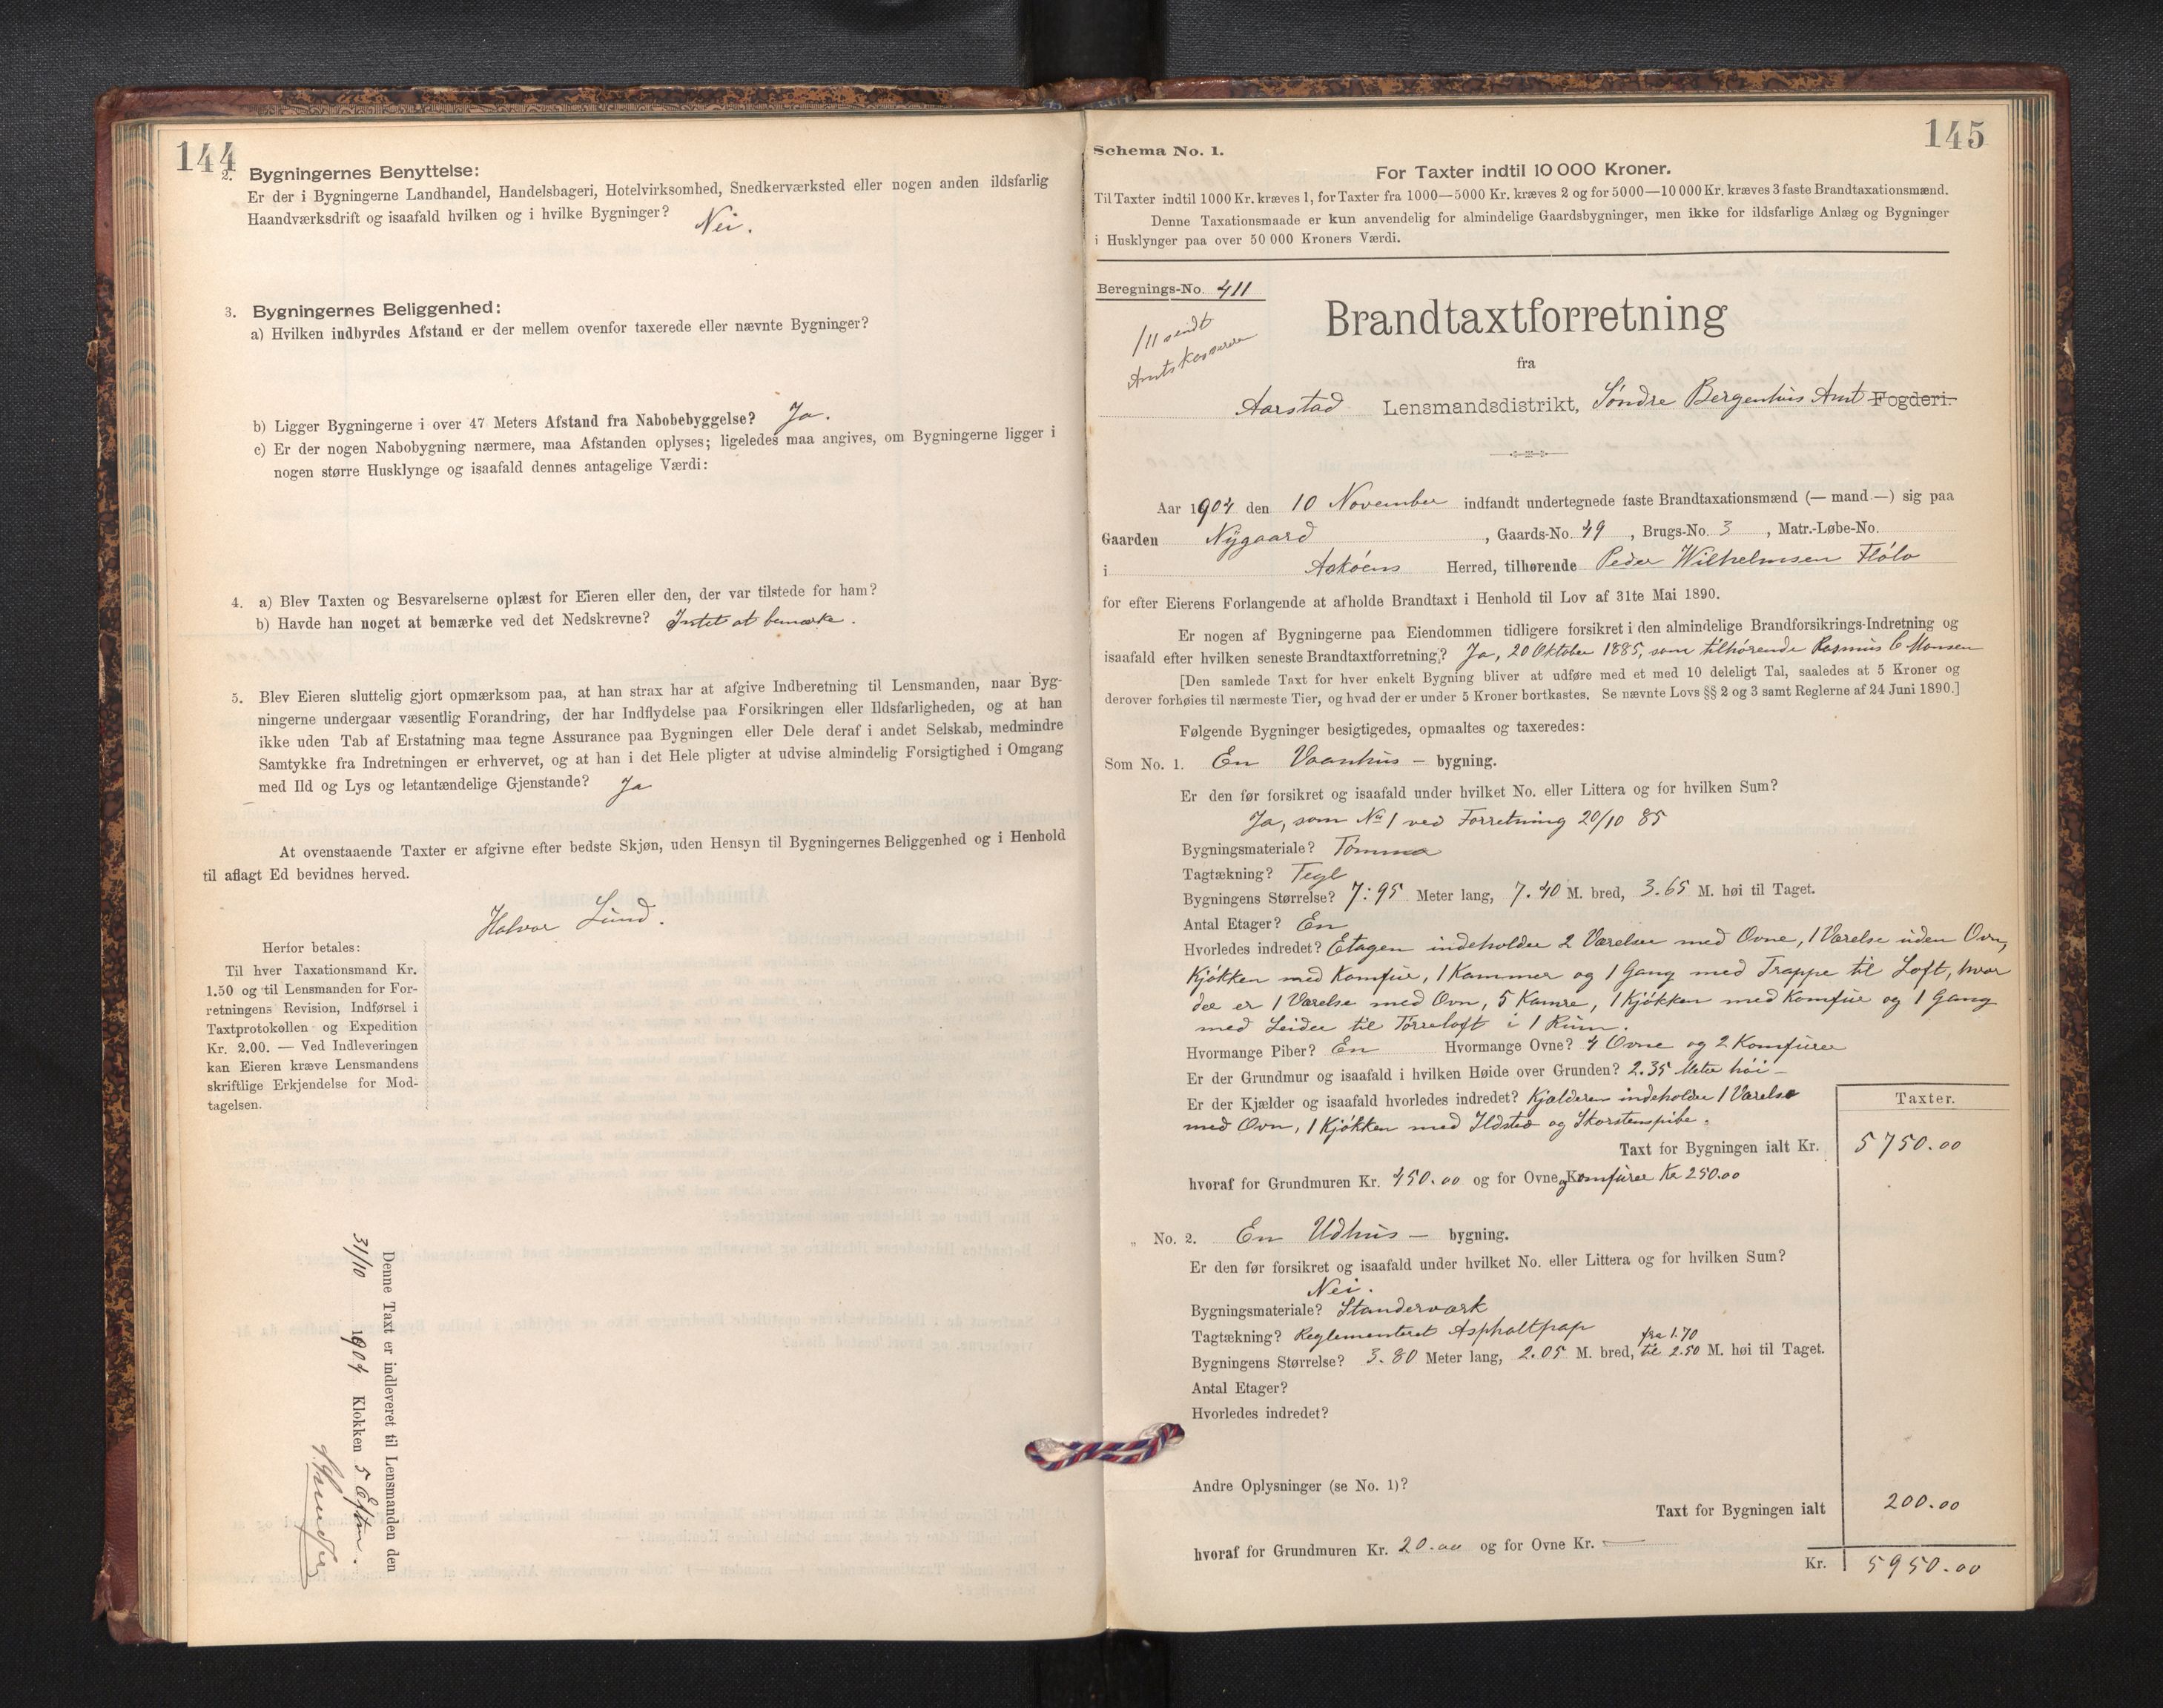 144
2. Bygningernes Benyttelse:
Er der i Bygningerne Landhandel, Handelsbageri, Hotelvirksomhed, Snedkerværksted eller nogen anden ildsfarlig
Haandværksdrift og isaafald hvilken og i hvilke Bygninger? Nei.
3. Bygningernes Beliggenhed:
a) Hvilken indbyrdes Afstand er der mellem ovenfor taxerede eller nævnte Bygninger?
b) Ligger Bygningerne i over 47 Meters Afstand fra Nabobebyggelse? Ja.
c) Er der nogen Nabobygning nærmere, maa Afstanden oplyses; ligeledes maa angives, om Bygningerne ligger i
nogen større Husklynge og isaafald dennes antagelige Værdi:
4. a) Blev Taxten og Besvarelserne oplæst for Eieren eller den, der var tilstede for ham?
b) Havde han noget at bemærke ved det Nedskrevne? Intet at bemærke.
5. Blev Eieren sluttelig gjort opmærksom paa, at han strax har at afgive Indberetning til Lensmanden, naar Byg-
ningerne undergaar væsentlig Forandring, der har Indflydelse paa Forsikringen eller Ildsfarligheden, og at han
ikke uden Tab af Erstatning maa tegne Assurance paa Bygningen eller Dele deraf i andet Selskab, medmindre
Samtykke fra Indretningen er erhvervet, og at han i det Hele pligter at udvise almindelig Forsigtighed i Omgang
med Ild og Lys og letantændelige Gjenstande? Ja
At ovenstaaende Taxter er afgivne efter bedste Skjøn, uden Hensyn til Bygningernes Beliggenhed og i Henhold
til aflagt Ed bevidnes herved.
Halvor Lund.
Herfor betales:
Til hver Taxationsmand Kr.
1.50 og til Lensmanden for For-
retningens Revision, Indførsel i
Taxtprotokollen og Expedition
Kr. 2.00. — Ved Indleveringen
kan Eieren kræve Lensmandens
skriftlige Erkjendelse for Mod-
tagelsen.
Denne Taxt er indleveret til Lensmanden den
31/10 1904 Klokken 5 Eftm.
145
Schema No. 1.
For Taxter indtil 10 000 Kroner.
Til Taxter indtil 1000 Kr. kræves 1, for Taxter fra 1000—5000 Kr. kræves 2 og for 5000—10 000 Kr. kræves 3 faste Brandtaxationsmænd.
Denne Taxationsmaade er kun anvendelig for almindelige Gaardsbygninger, men ikke for ildsfarlige Anlæg og Bygninger
i Husklynger paa over 50 000 Kroners Værdi.
Beregnings-No. 411
/11 sendt
Amtskassereren
Brandtaxtforretning
fra
Aarstad Lensmandsdistrikt, Søndre Bergenhus Amt Fogderi.
Aar 1904 den 10 November indfandt undertegnede faste Brandtaxationsmænd (— mand —) sig paa
Gaarden Nygaard, Gaards-No. 49, Brugs-No. 3, Matr.-Løbe-No.
i Askøens Herred, tilhørende Peder Wilhelmsen Flólo
for efter Eierens Forlangende at afholde Brandtaxt i Henhold til Lov af 31te Mai 1890.
Er nogen af Bygningerne paa Eiendommen tidligere forsikret i den almindelige Brandforsikrings-Indretning og
isaafald efter hvilken seneste Brandtaxtforretning? Ja, 20 Oktober 1885, som tilhørende Rasmus C Monsen
[Den samlede Taxt for hver enkelt Bygning bliver at udføre med et med 10 deleligt Tal, saaledes at 5 Kroner og
derover forhøies til nærmeste Tier, og hvad der er under 5 Kroner bortkastes. Se nævnte Lovs §§ 2 og 3 samt Reglerne af 24 Juni 1890.]
Følgende Bygninger besigtigedes, opmaaltes og taxeredes:
Som No. 1. En Vaanhus — bygning.
Er den før forsikret og isaafald under hvilket No. eller Littera og for hvilken Sum?
Ja, som No 1 ved Forretning 20/10 85
Bygningsmateriale? Tømmer
Tagtækning? Tegl
Bygningens Størrelse? 7:95 Meter lang, 7.40 M. bred, 3.65 M. høi til Taget.
Antal Etager? En
Hvorledes indredet? Etagen indeholder 2 Værelser med Ovne, 1 Værelse uden Ovn,
Kjøkken med Komfur, 1 Kammer og 1 Gang med Trappe til Loft, hvor
der er 1 Værelse med Ovn, 5 Kamre, 1 Kjøkken med Komfur og 1 Gang
med Leider til Tørreloft i 1 Rum.
Hvormange Piber? En Hvormange Ovne? 4 Ovne og 2 Komfurer
Er der Grundmur og isaafald i hvilken Høide over Grunden? 2.35 Meter høi —
Er der Kjælder og isaafald hvorledes indredet? Kjælderen indeholder 1 Værelse
med Ovn, 1 Kjøkken med Ildsted og Skorstenspibe.
Taxter.
Taxt for Bygningen ialt Kr. 5750.00
hvoraf for Grundmuren Kr. 450.00 og for Ovne og Komfurer Kr 250.00
„ No. 2. En Udhus — bygning.
Er den før forsikret og isaafald under hvilket No. eller Littera og for hvilken Sum?
Nei.
Bygningsmateriale? Standerværk
Tagtækning? Reglementeret Asphaltpap
Bygningens Størrelse? 3.80 Meter lang, 2.05 M. bred, fra 1.70 til 2.50 M. høi til Taget.
Antal Etager?
Hvorledes indredet?
Andre Oplysninger (se No. 1)?
Taxt for Bygningen ialt 200.00
hvoraf for Grundmuren Kr. 20.00 og for Ovne Kr. —
Kr. 5950.00